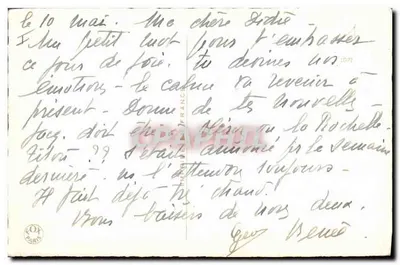 le 10 mai. Ma chère Didie
Un petit mot pour t'embrasser
ce jour de joie. tu devines nos
émotions - le calme va revenir à
présent - Donne de tes nouvelles -
doit être ou La Rochelle -
?? S'était annoncé pr la semaine
dernière. ns l'attendons toujours -
Il fait déjà trè chaud.
Bons baisers de nous deux.
Geo Renée
FOX